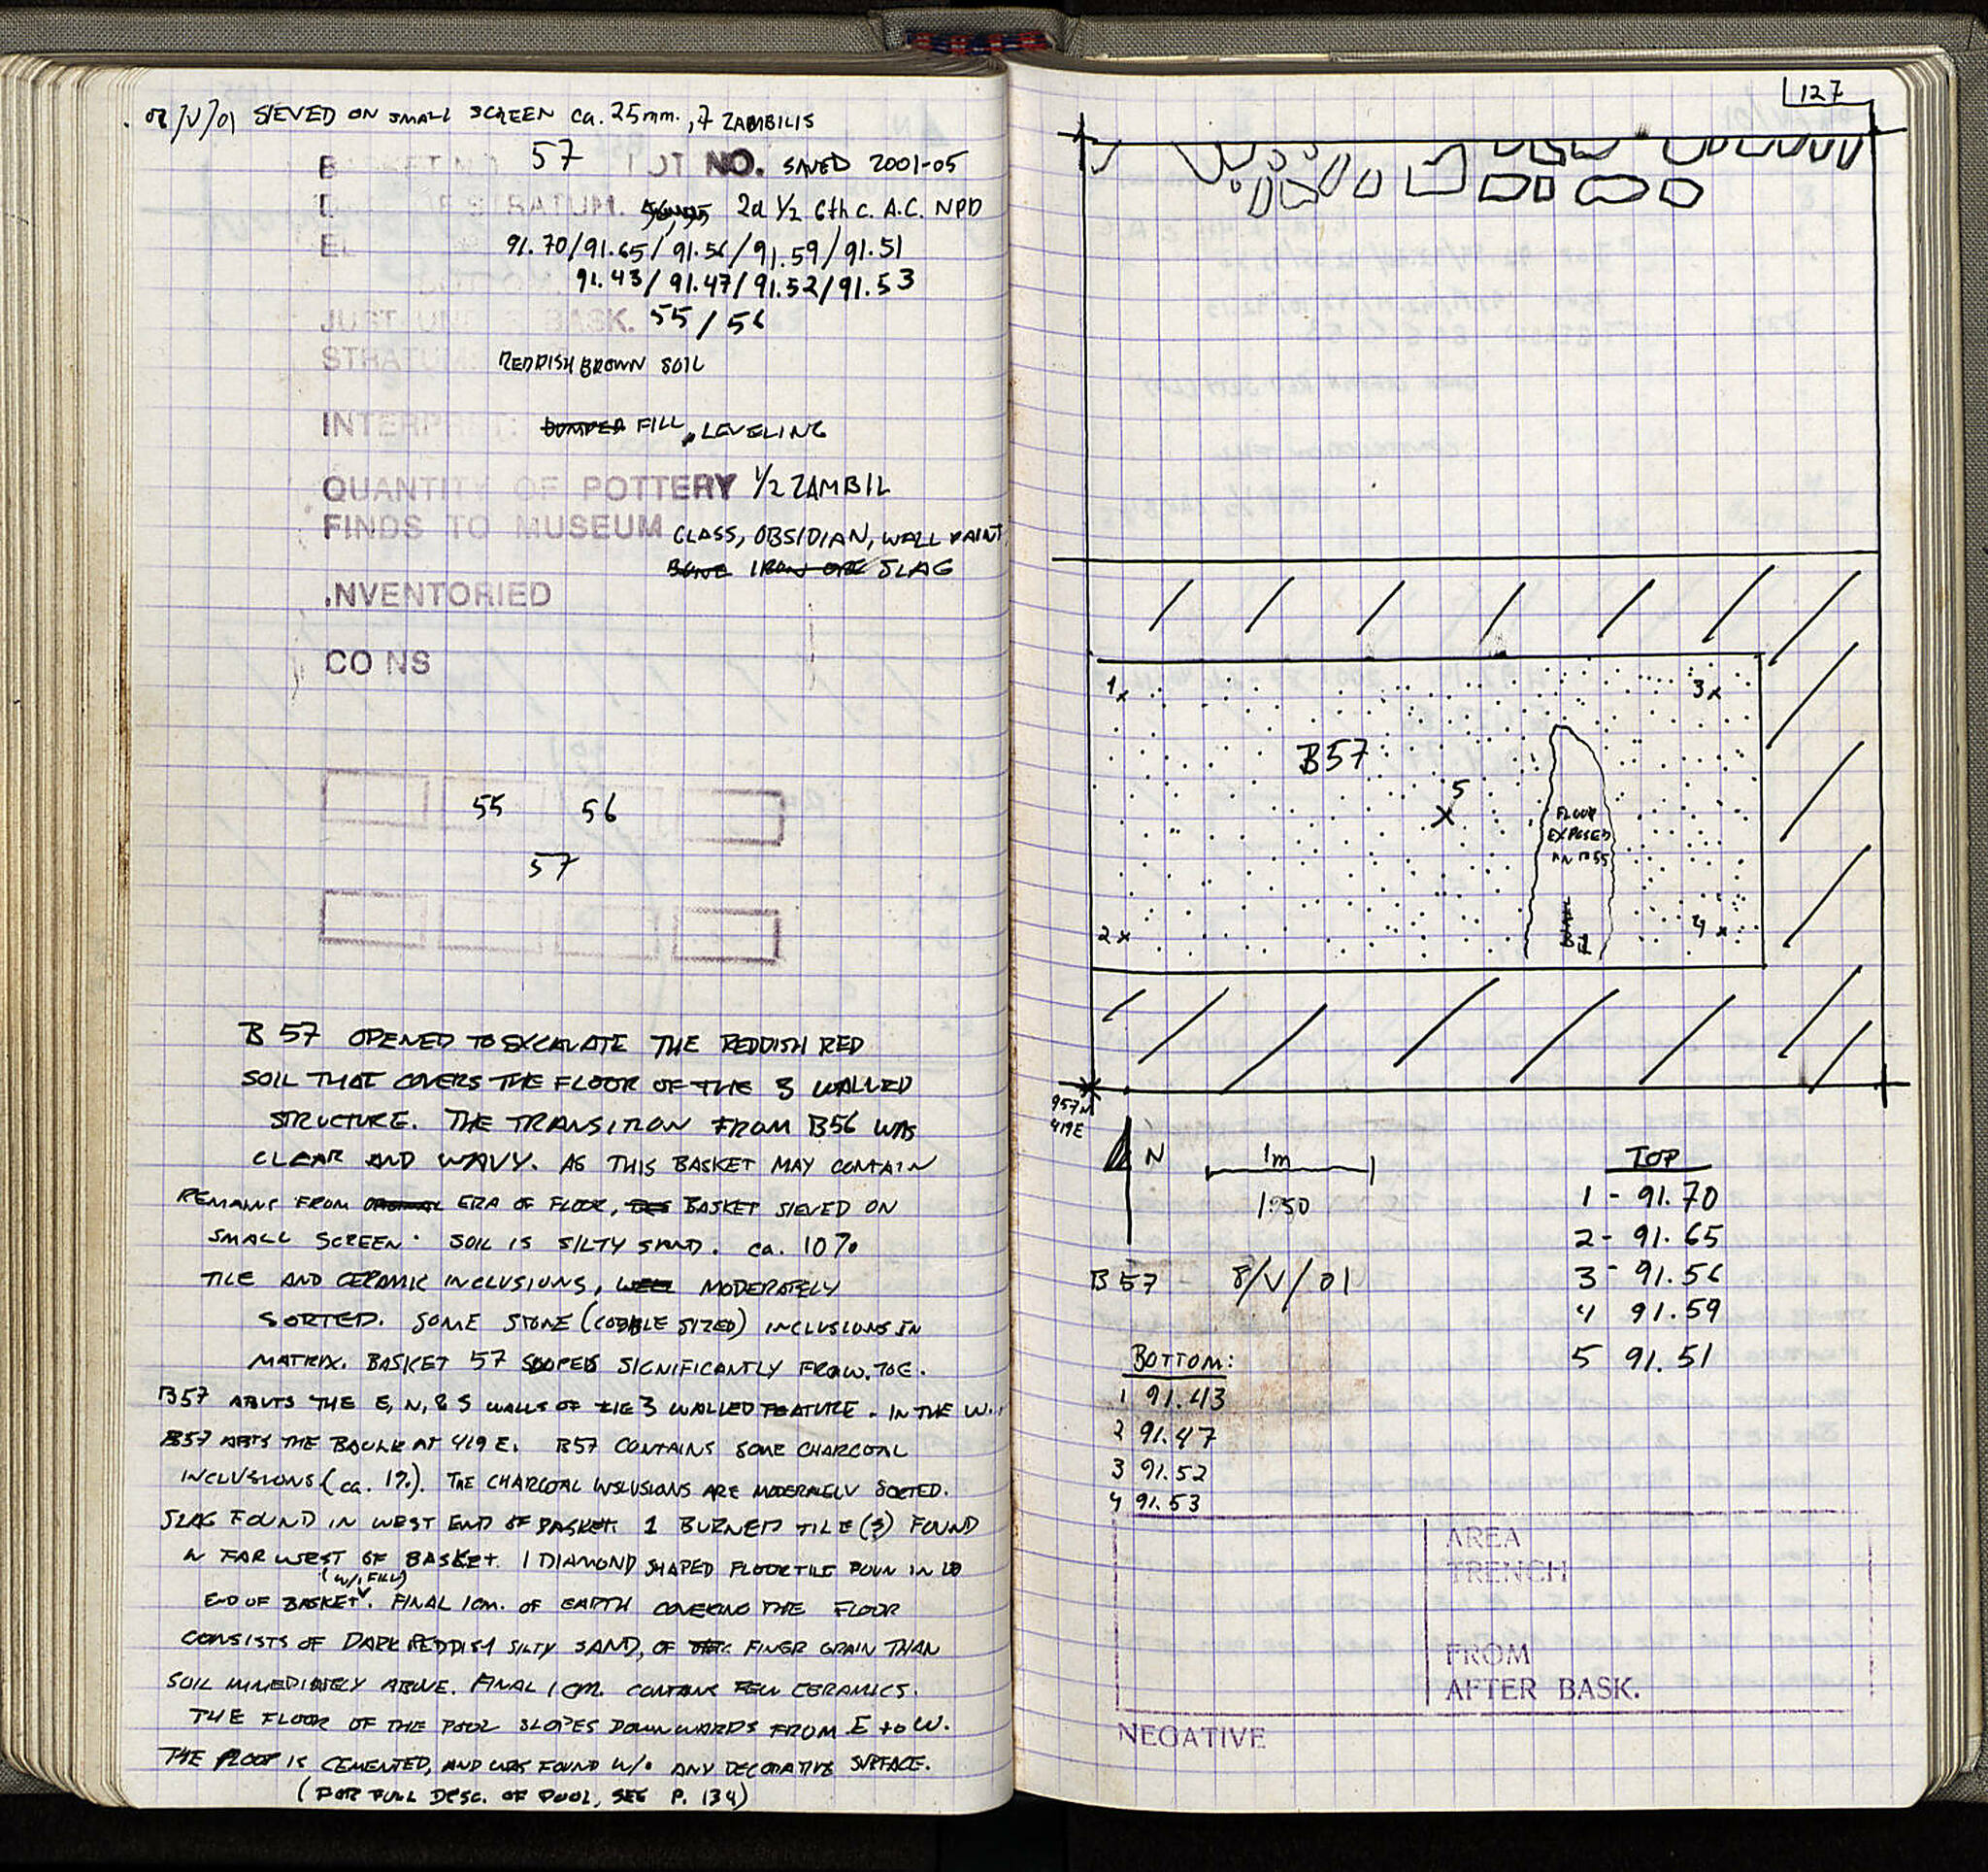 08/V/01 SIEVED ON SMALL SCREEN ca. 25mm., 7 ZAMBILIS
57 LOT NO. SAVED 2001-05
STRATUM. 2d 1/2 6th c. A.C. NPD
EL 91.70/91.65/91.56/91.59/91.51
91.43/91.47/91.52/91.53
JUST UND BASK. 55/56
STRATUM: REDDISH BROWN SOIL
INTERPRET: DUMPED FILL, LEVELING
QUANTITY OF POTTERY 1/2 ZAMBIL
FINDS TO MUSEUM GLASS, OBSIDIAN, WALL PAINT,
BONE IRON ORE SLAG
INVENTORIED
COINS
55 56
57
B 57 OPENED TO EXCAVATE THE REDDISH RED
SOIL THAT COVERS THE FLOOR OF THE 3 WALLED
STRUCTURE. THE TRANSITION FROM B56 WAS
CLEAR AND WAVY. AS THIS BASKET MAY CONTAIN
REMAINS FROM ORIGINAL ERA OF FLOOR, BASKET SIEVED ON
SMALL SCREEN. SOIL IS SILTY SAND. ca. 10%
TILE AND CERAMIC INCLUSIONS, WELL MODERATELY
SORTED. SOME STONE (COBBLE SIZED) INCLUSIONS IN
MATRIX. BASKET 57 SLOPES SIGNIFICANTLY FROM W. TO E.
B57 ABUTS THE E, N, & S WALLS OF THE 3 WALLED FEATURE. IN THE W.,
B57 ABTS THE BAULK AT 419 E. B57 CONTAINS SOME CHARCOAL
INCLUSIONS (ca. 1%). THE CHARCOAL INCLUSIONS ARE MODERATELY SORTED.
SLAG FOUND IN WEST END OF BASKET. 1 BURNED TILE (?) FOUND
IN FAR WEST OF BASKET. 1 DIAMOND SHAPED FLOOR TILE FOUN IN W
(W/I FILL)
END OF BASKET. FINAL 1cm. OF EARTH COVERING THE FLOOR
CONSISTS OF DARK REDDISH SILTY SAND, OF FINER GRAIN THAN
SOIL IMMEDIATELY ABOVE. FINAL 1 cm. CONTAINS FEW CERAMICS.
THE FLOOR OF THE POOL SLOPES DOWNWARDS FROM E to W.
THE FLOOR IS CEMENTED, AND WAS FOUND W/O ANY DECORATIVE SURFACE.
(FOR FULL DESC. OF POOL, SEE P. 134)
127
1x
3x
B57
5
X
FLOOR
EXPOSED
IN B55
2x
4x
957N
419E
N
1m
1:50
B57 - 8/V/01
TOP
1 - 91.70
2 - 91.65
3 - 91.56
4 91.59
5 91.51
BOTTOM:
1 91.43
2 91.47
3 91.52
4 91.53
AREA
TRENCH
FROM
AFTER BASK.
NEGATIVE